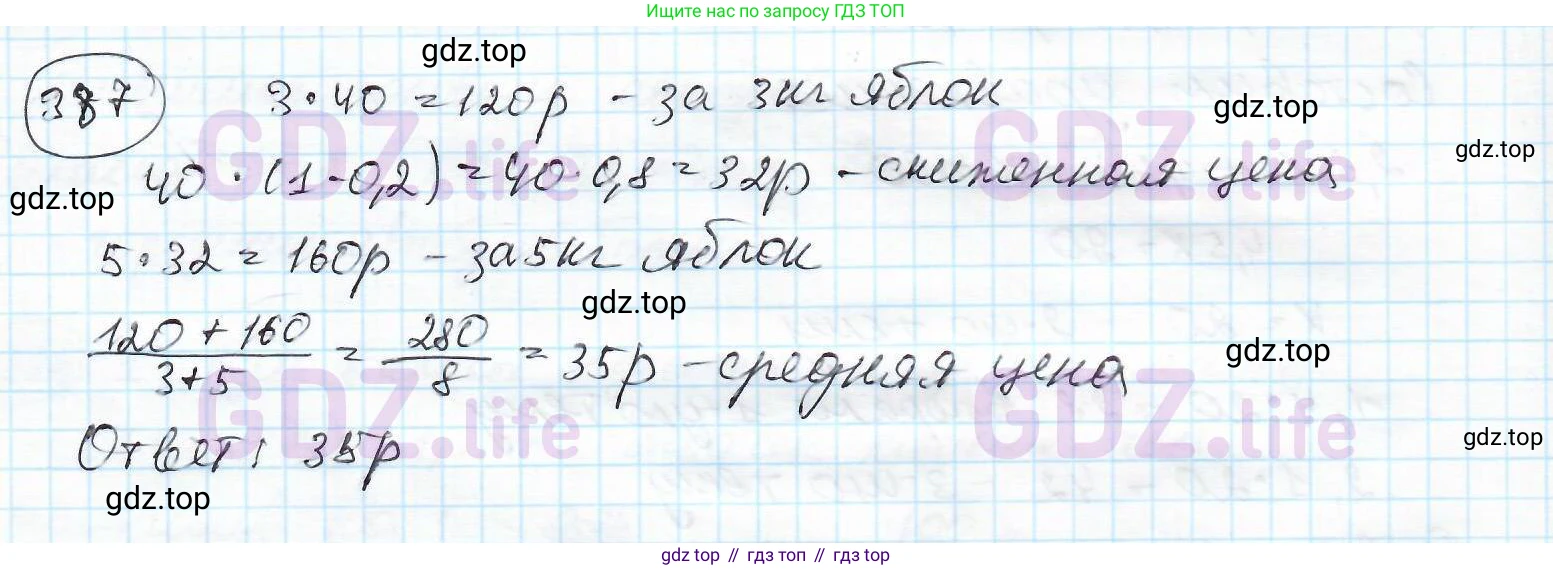 Ищите нас по запросу ГДЗ ТОП
gdz.top
387 3·40 = 120р - за 3кг яблок
gdz.top
GDZ.life GDZ.life
gdz.top
40·(1-0,2) = 40·0,8 = 32р - сниженная цена
gdz.top
5·32 = 160р - за 5кг яблок
gdz.top
120 + 160 / 3+5 = 280 / 8 = 35р - средняя цена
gdz.top
GDZ.life GDZ.life
Ответ: 35р
gdz.top
gdz.top
gdz top // гдз топ // gdz top